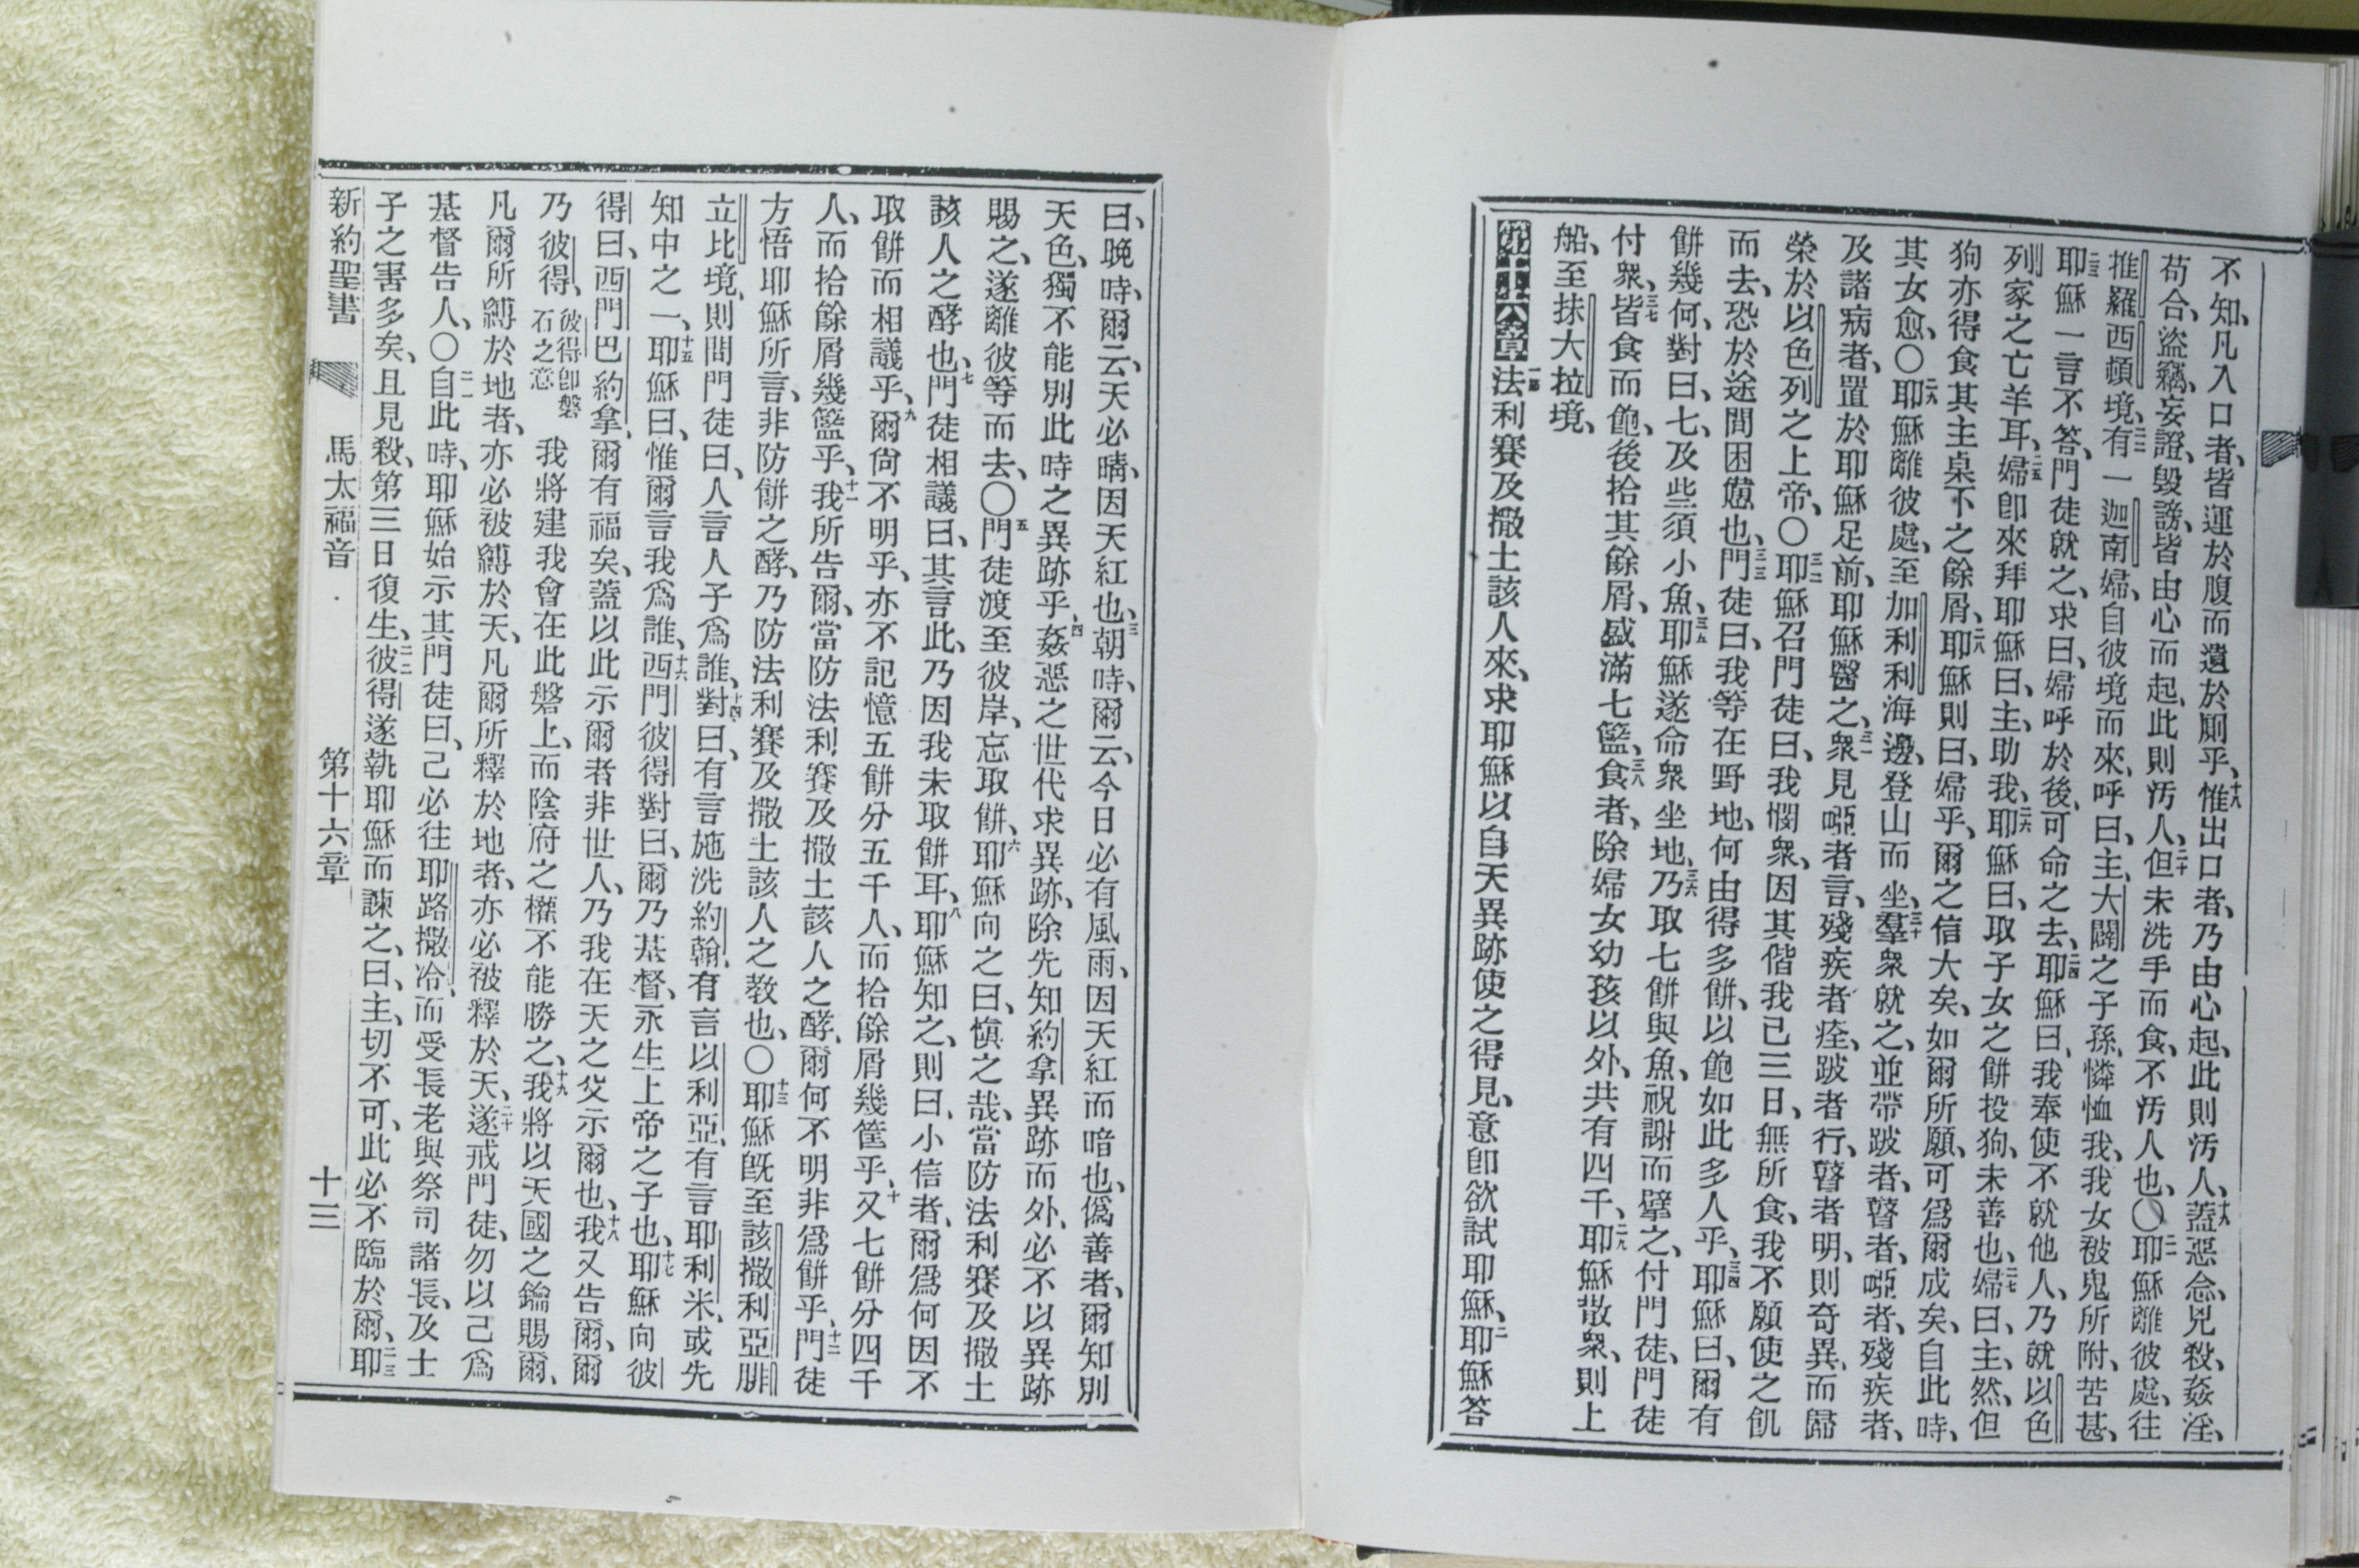 不知、凡入口者、皆運於腹而遺於厠乎、十八惟出口者、乃由心起、此則汚人、十九蓋惡念、兇殺、姦淫、
苟合、盜竊、妄證、毀謗、皆由心而起、此則汚人、二十但未洗手而食、不汚人也、〇二一耶穌離彼處、往
推羅西頓境、二二有一迦南婦、自彼境而來、呼曰、主、大闢之子孫、憐恤我、我女被鬼所附、苦甚、
二三耶穌一言不答、門徒就之、求曰、婦呼於後、可命之去、二四耶穌曰、我奉使不就他人、乃就以色
列家之亡羊耳、二五婦卽來拜耶穌曰、主、助我、二六耶穌曰、取子女之餅投狗、未善也、二七婦曰、主、然、但
狗亦得食其主桌下之餘屑、二八耶穌則曰、婦乎、爾之信大矣、如爾所願、可爲爾成矣、自此時、
其女愈、〇二九耶穌離彼處、至加利利海邊、登山而坐、三十羣衆就之、並帶跛者、瞽者、啞者、殘疾者、
及諸病者、置於耶穌足前、耶穌醫之、三一衆見啞者言、殘疾者痊、跛者行、瞽者明、則奇異、而歸
榮於以色列之上帝、〇三二耶穌召門徒曰、我憫衆、因其偕我已三日、無所食、我不願使之飢
而去、恐於途間困憊也、三三門徒曰、我等在野地、何由得多餅、以飽如此多人乎、三四耶穌曰、爾有
餅幾何、對曰、七、及些須小魚、三五耶穌遂命衆坐地、三六乃取七餅與魚、祝謝而擘之、付門徒、門徒
付衆、三七皆食而飽、後拾其餘屑、盛滿七籃、三八食者、除婦女幼孩以外、共有四千、三九耶穌散衆、則上
船、至抹大拉境、
第十六章一節法利賽及撒土該人來、求耶穌以自天異跡使之得見、意卽欲試耶穌、二耶穌答
曰、晚時、爾云、天必晴、因天紅也、三朝時、爾云、今日必有風雨、因天紅而暗也、僞善者、爾知別
天色、獨不能別此時之異跡乎、四姦惡之世代求異跡、除先知約拿異跡而外、必不以異跡
賜之、遂離彼等而去、〇五門徒渡至彼岸、忘取餅、六耶穌向之曰、愼之哉、當防法利賽及撒土
該人之酵也、七門徒相議曰、其言此、乃因我未取餅耳、八耶穌知之、則曰、小信者、爾爲何因不
取餅而相議乎、九爾尙不明乎、亦不記憶五餅分五千人、而拾餘屑幾筐乎、十又七餅分四千
人、而拾餘屑幾籃乎、十一我所告爾、當防法利賽及撒土該人之酵、爾何不明非爲餅乎、十二門徒
方悟耶穌所言、非防餅之酵、乃防法利賽及撒土該人之敎也、〇十三耶穌旣至該撒利亞腓
立比境、則問門徒曰、人言人子爲誰、十四對曰、有言施洗約翰、有言以利亞、有言耶利米、或先
知中之一、十五耶穌曰、惟爾言我爲誰、十六西門彼得對曰、爾乃基督、永生上帝之子也、十七耶穌向彼
得曰、西門巴約拿、爾有福矣、蓋以此示爾者非世人、乃我在天之父示爾也、十八我又告爾、爾
乃彼得、彼得卽磐石之意我將建我會在此磐上、而陰府之權不能勝之、十九我將以天國之鑰賜爾、
凡爾所縛於地者、亦必被縛於天、凡爾所釋於地者、亦必被釋於天、二十遂戒門徒、勿以己爲
基督告人、〇二一自此時、耶穌始示其門徒曰、己必往耶路撒冷、而受長老與祭司諸長、及士
子之害多矣、且見殺、第三日復生、二二彼得遂執耶穌而諫之、曰、主、切不可、此必不臨於爾、二三耶
新約聖書 馬太福音 第十六章 十三